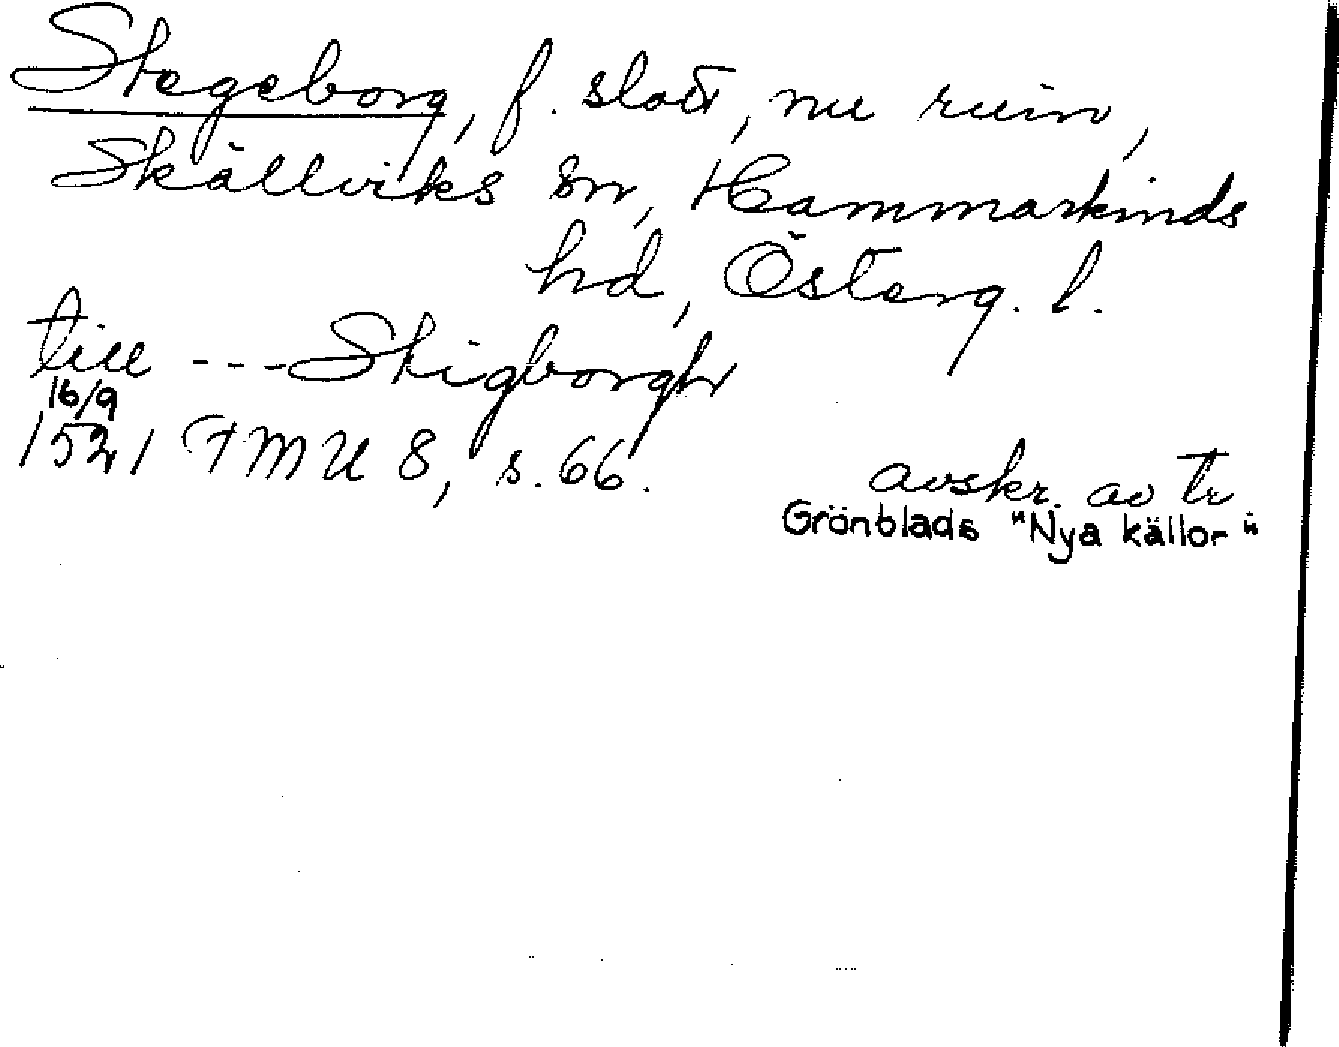 Stegeborg, f. slott, nu ruin,
Skällviks sn, Hammarkinds
hd, Österg. l.
till --- Stigborgh
16/9
1521 FMU 8, s. 66.
avskr. av tr
Grönblads "Nya källor"